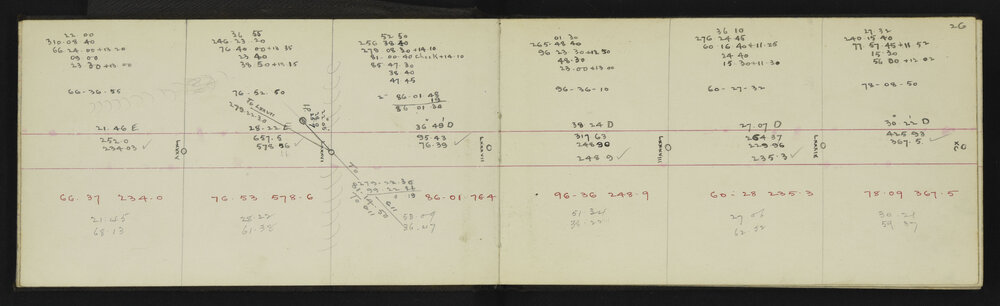 26
22 00
310.08 40
66 24.00 +13 20
09 00
23 30 +13 00
66-36-55
21.46 E
252.0
234.03 ✓
66.37 234.0
21.45
68.13
36 55
246 23 20
76 40 00 +13 35
23 40
38 50 +13 15
76-52.50
To LXXXVII
279-22-30
28-22 E
657.5
578.96 ✓
76.53 578.6
28.22
61.38
52 50
256 38 40
279 08 30 +14.10
81-00 40 check +14.10
85 47.30
38 40
47 45
2- 86-01 45
86-01.30
36° 49' D
95.43
76.39 ✓
LXXXVII
To
279-22.30
99-22
86-01 764
86.47
01 30
265-48 40
96 23.30 +12 50
48.30
23-00 +13 00
96-36-10
39 24 D
317 63
248 96
248.9 ✓
LXXXVIII
96-36 248.9
51 34
36.22
36 10
276 24 45
60 16 40 +11.25
24 40
15 30 +11.30
60-27-32
27.07 D
264.37
229 96
235.3 ✓
LXXXIX
60-28 235.3
27 06
62.52
27 32
240 15 40
77 57 45 +11 52
15 30
56 30 +12 02
78-08-50
30-22 D
425 93
367.5 ✓
XC
78.09 367.5
30-21